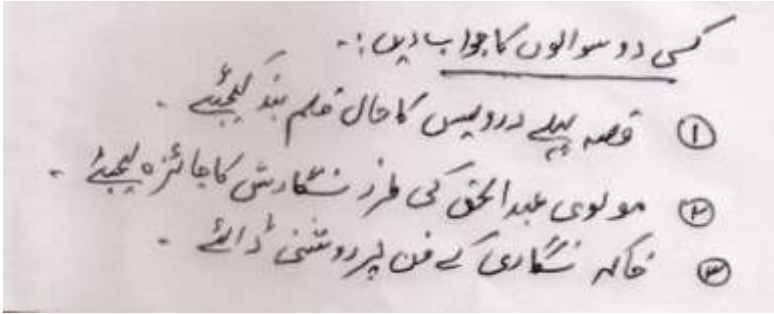 کسی دو سوالوں کا جواب دیں :-
① قصہ پہلے درویش کا حال قلم بند کیجئے ۔
② مولوی عبدالحق کی طرز نگارش کا جائزہ لیجئے ۔
③ خاکہ نگاری کے فن پر روشنی ڈالئے ۔